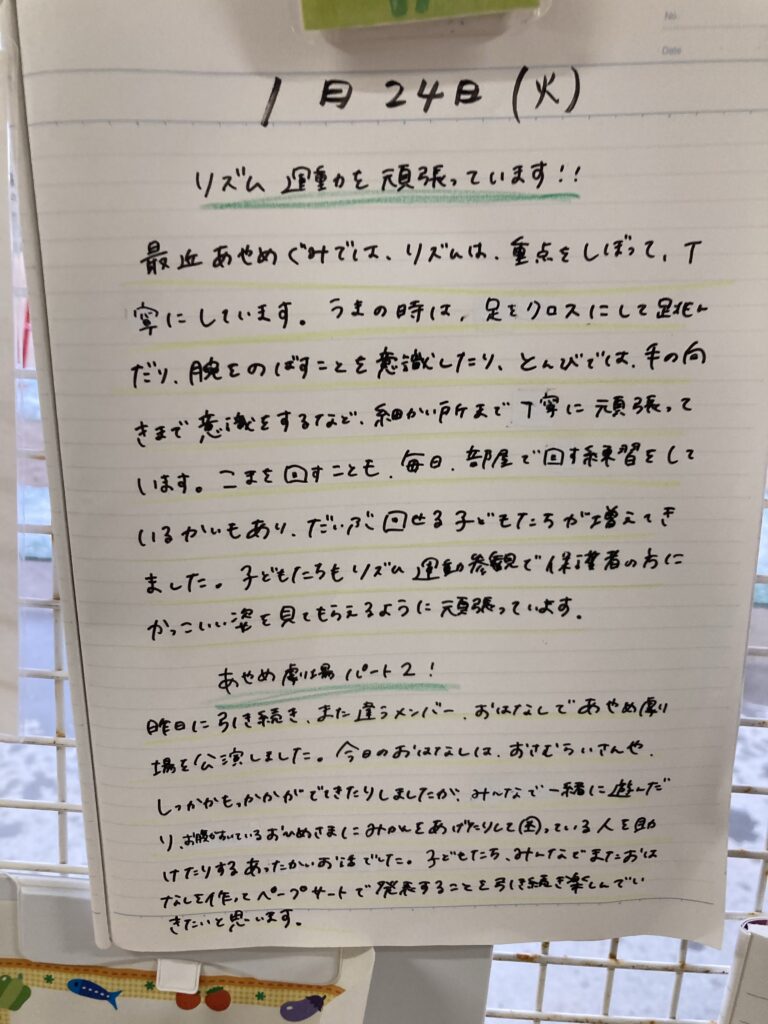 No
Date
1月24日(火)
リズム運動を頑張っています!!
最近あやめぐみでは、リズムは、重点をしぼって、丁
寧にしています。うまの時は、足をクロスにして跳ん
だり、腕をのばすことを意識したり、とんびでは、手の向
きまで意識をするなど、細かい所まで丁寧に頑張って
います。こまを回すことも、毎日、部屋で回す練習をして
いるかいもあり、だいぶ回せる子どもたちが増えてき
ました。子どもたちもリズム運動参観で保護者の方に
かっこいい姿を見てもらえるように頑張っています。
あやめ劇場パート2!
昨日に引き続き、また違うメンバー、おはなしであやめ劇
場を公演しました。今日のおはなしは、おさむらいさんや、
がでてきたりしましたが、みんなで一緒に遊んだ
り、お腹がすいているおひめさまにみかんをあげたりして困っている人を助
けたりするあったかいお話でした。子どもたち、みんなでまたおは
なしを作ってペープサートで発表することを引き続き楽しんでい
きたいと思います。